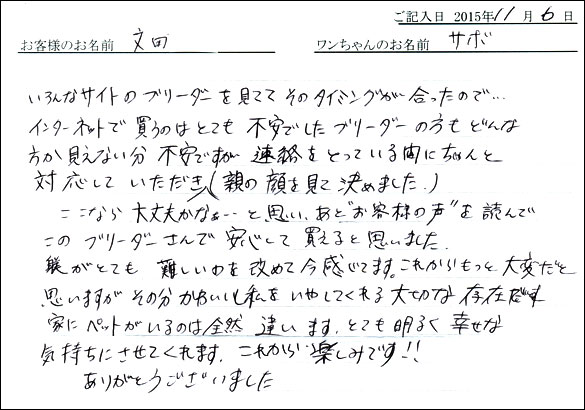 ご記入日 2015年 11 月 6 日
お客様のお名前 文田 ワンちゃんのお名前 サボ
いろんなサイトのブリーダーを見てて そのタイミングが 合ったので…
インターネットで 買うのはとても 不安でした ブリーダーの方も どんな
方か 見えない分 不安ですが 連絡をとっている間に ちゃんと
対応して いただき (親の顔を見て 決めました。)
ここなら 大丈夫かなぁ… と思い、あと"お客様の声"を 読んで
この ブリーダーさんで 安心して 買えると 思いました。
躾がとても 難しいのを 改めて 今 感じてます。これからもっと 大変だと
思いますが その分 かわいいし 私を いやしてくれる 大切な 存在です
家に ペットがいるのは 全然 違います。とても 明るく 幸せな
気持ちに させてくれます。これから 楽しみです!!
ありがとうございました